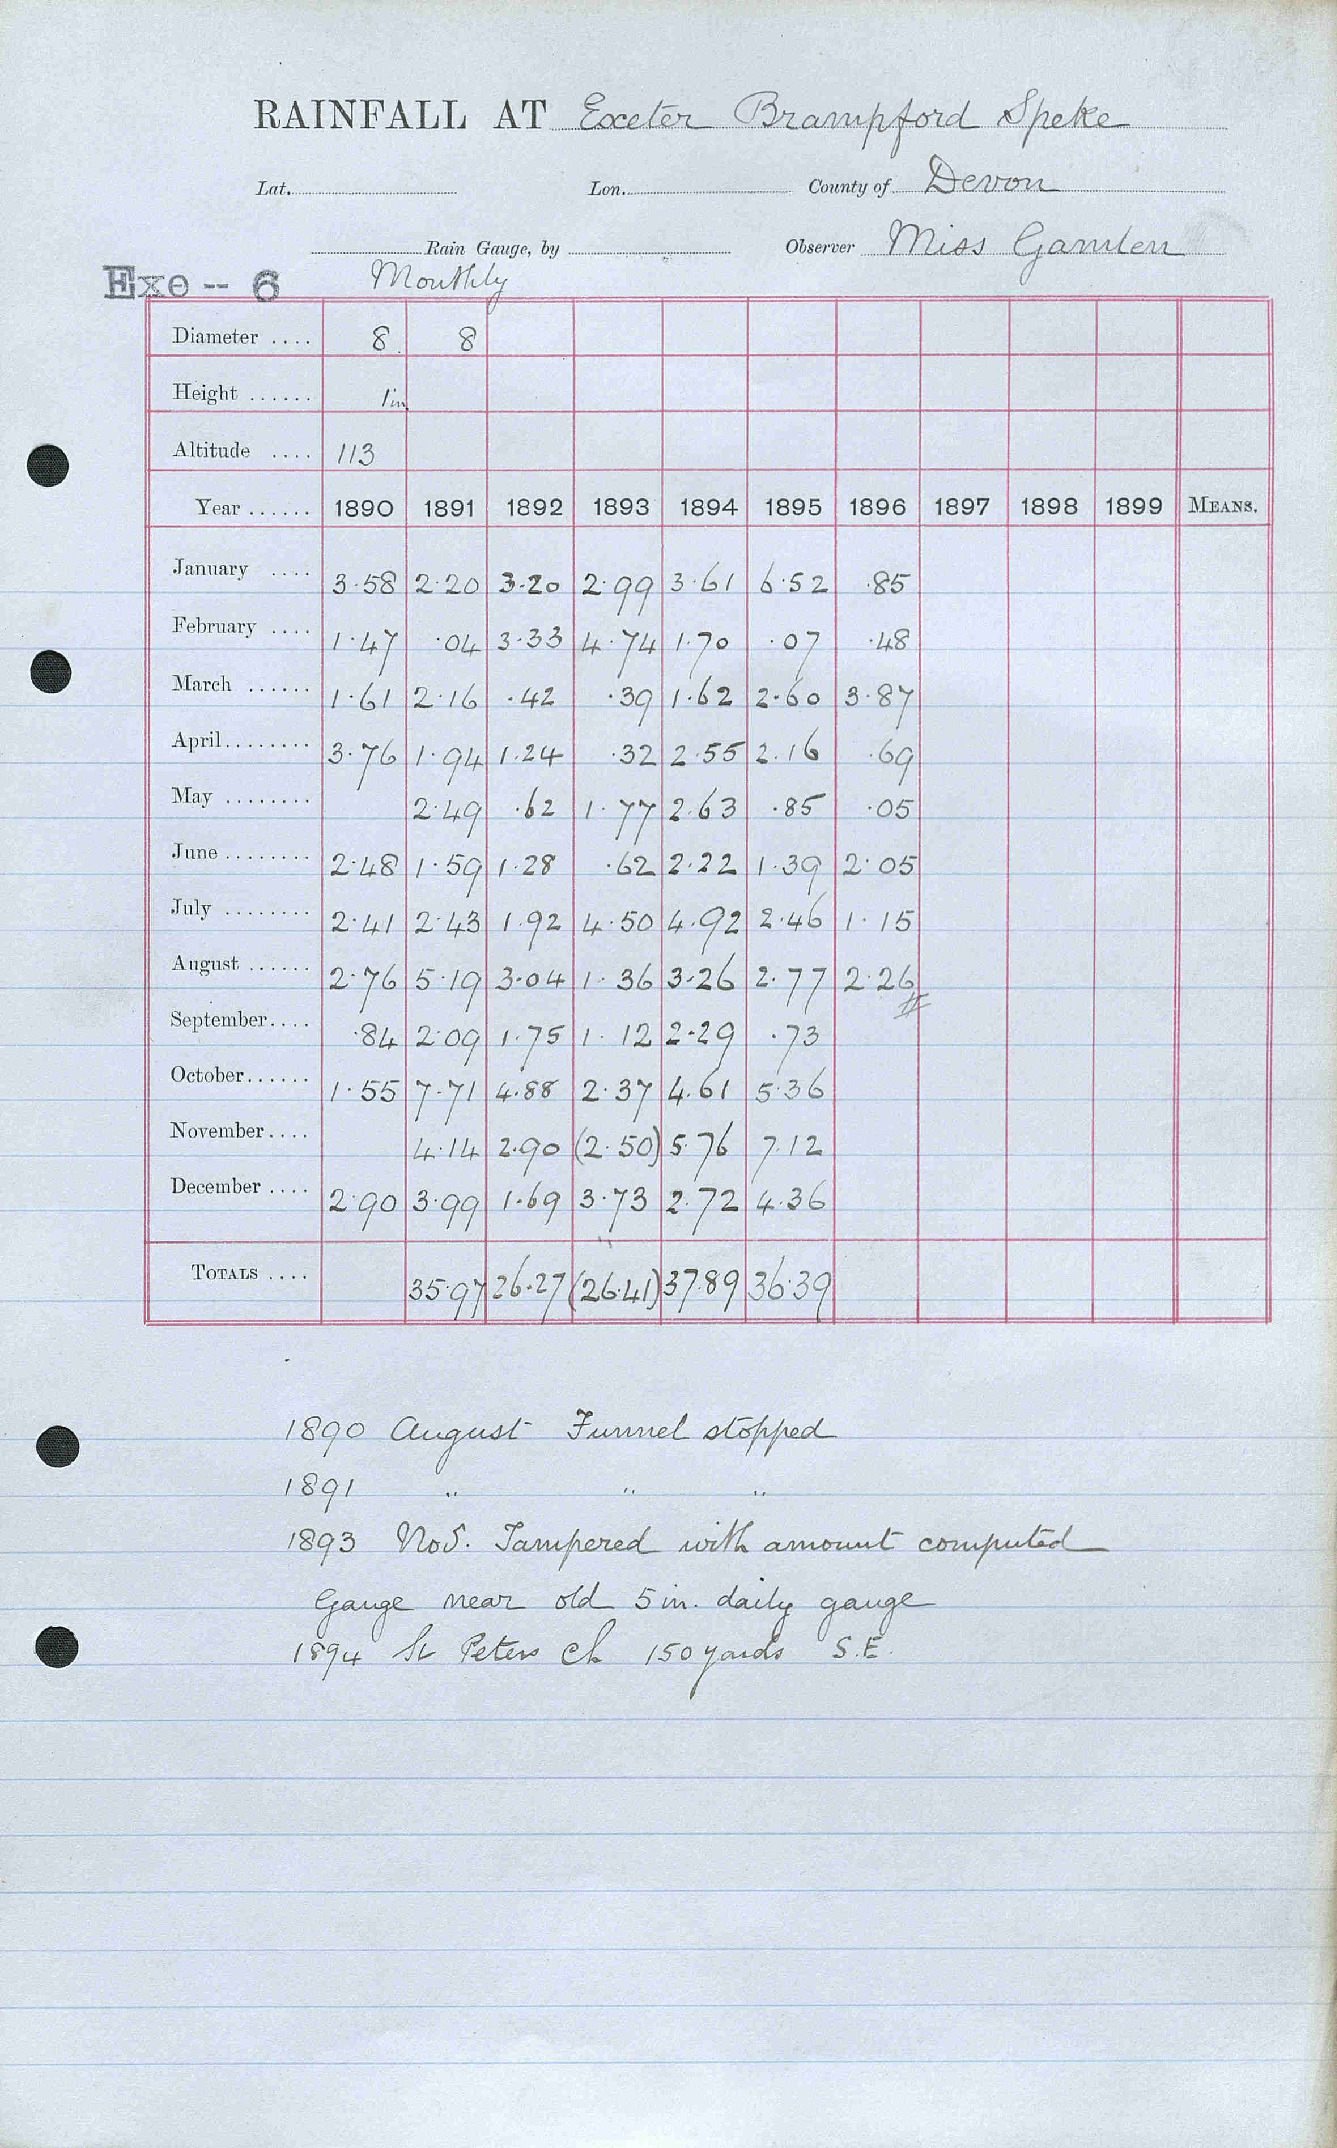 RAINFALL AT Exeter Brampford Speke
Lat. Lon. County of Devon
Rain Gauge, by Observer Miss Gamlen
Exe -- 6 Monthly
Diameter .... 8 8
Height ...... 1in
Altitude .... 113
Year ...... 1890 1891 1892 1893 1894 1895 1896 1897 1898 1899 MEANS.
January .... 3.58 2.20 3.20 2.99 3.61 6.52 .85
February .... 1.47 .04 3.33 4.74 1.70 .07 .48
March ...... 1.61 2.16 .42 .39 1.62 2.60 3.87
April........ 3.76 1.94 1.24 .32 2.55 2.16 .69
May ........ 2.49 .62 1.77 2.63 .85 .05
June ........ 2.48 1.59 1.28 .62 2.22 1.39 2.05
July ........ 2.41 2.43 1.92 4.50 4.92 2.46 1.15
August ...... 2.76 5.19 3.04 1.36 3.26 2.77 2.26
September.... .84 2.09 1.75 1.12 2.29 .73
October...... 1.55 7.71 4.88 2.37 4.61 5.36
November.... 4.14 2.90 (2.50) 5.76 7.12
December .... 2.90 3.99 1.69 3.73 2.72 4.36
TOTALS .... 35.97 26.27 (26.41) 37.89 36.39
1890 August Funnel stopped
1891 " " "
1893 Nov. Tampered with amount computed
Gauge near old 5 in. daily gauge
1894 St Peters Ch 150 yards S.E.